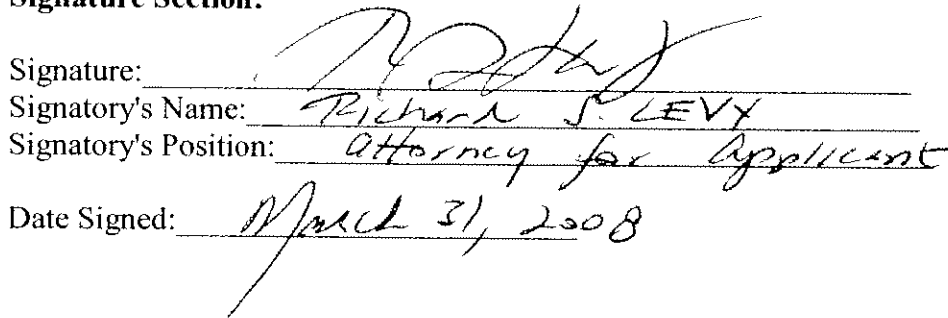 Signature Section:
Signature:
Signatory's Name: Richard S. LEVY
Signatory's Position: Attorney for Applicant
Date Signed: March 31, 2008